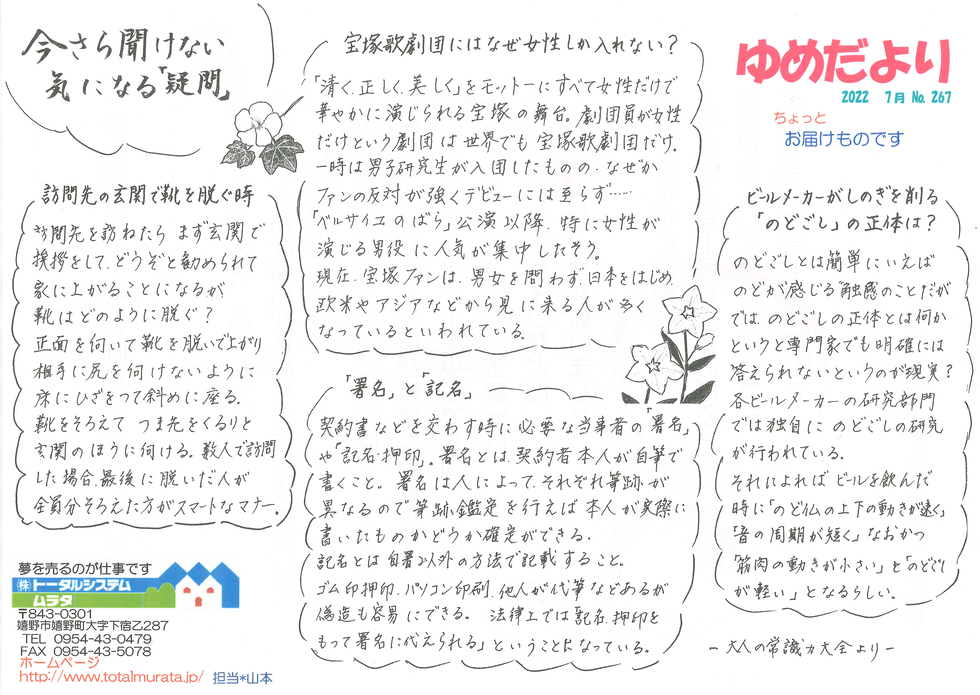 今さら聞けない
気になる「疑問」
ゆめだより
2022 7月 No. 267
ちょっと
お届けものです
訪問先の玄関で靴を脱ぐ時
訪問先を訪ねたら まず玄関で
挨拶をして、どうぞと勧められて
家に上がることになるが
靴はどのように脱ぐ?
正面を向いて靴を脱いで上がり
相手に尻を向けないように
床にひざをつて斜めに座る。
靴をそろえて つま先をくるりと
玄関のほうに向ける。数人で訪問
した場合、最後に脱いだ人が
全員分そろえた方がスマートなマナー。
宝塚歌劇団にはなぜ女性しか入れない?
「清く、正しく、美しく」をモットーにすべて女性だけで
華やかに演じられる宝塚の舞台。劇団員が女性
だけという劇団は世界でも宝塚歌劇団だけ。
一時は男子研究生が入団したものの、なぜか
ファンの反対が強くデビューには至らず……
「ベルサイユのばら」公演以降、特に女性が
演じる男役に人気が集中したそう。
現在、宝塚ファンは、男女を問わず、日本をはじめ
欧米やアジアなどから見に来る人が多く
なっているといわれている。
「署名」と「記名」
契約書などを交わす時に必要な当事者の「署名」
や「記名・押印」。署名とは、契約者本人が自筆で
書くこと。署名は人によって、それぞれ筆跡が
異なるので筆跡鑑定を行えば本人が実際に
書いたものかどうか確定ができる。
記名とは自署以外の方法で記載すること。
ゴム印押印、パソコン印刷、他人が代筆などあるが
偽造も容易にできる。 法律上では「記名、押印を
もって署名に代えられる」ということになっている。
ビールメーカーがしのぎを削る
「のどごし」の正体は?
のどごしとは簡単にいえば
のどが感じる触感のことだが
では、のどごしの正体とは何か
というと専門家でも明確には
答えられないというのが現実?
各ビールメーカーの研究部門
では独自に のどごしの研究
が行われている。
それによれば ビールを飲んだ
時に「のど仏の上下の動きが速く」
「音の周期が短く」なおかつ
「筋肉の動きが小さい」と「のどごし
が軽い」となるらしい。
-大人の常識力大全より-
夢を売るのが仕事です
㈱トータルシステム
ムラタ
〒843-0301
嬉野市嬉野町大字下宿乙2​87
TEL 0954-43-0479
FAX 0954-43-5078
ホームページ
http://www.totalmurata.jp/ 担当*山本